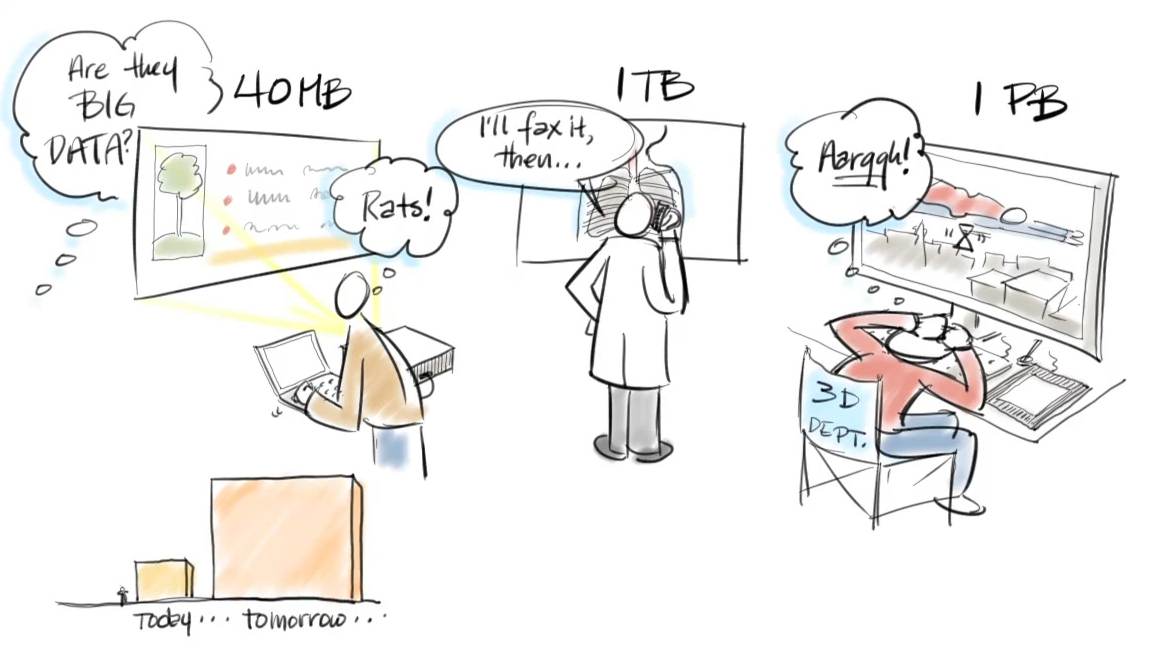 Are they
BIG
DATA?
40MB
Rats!
1 TB
I'll fax it,
then...
1 PB
Aarggh!
3D
DEPT.
Today... tomorrow...